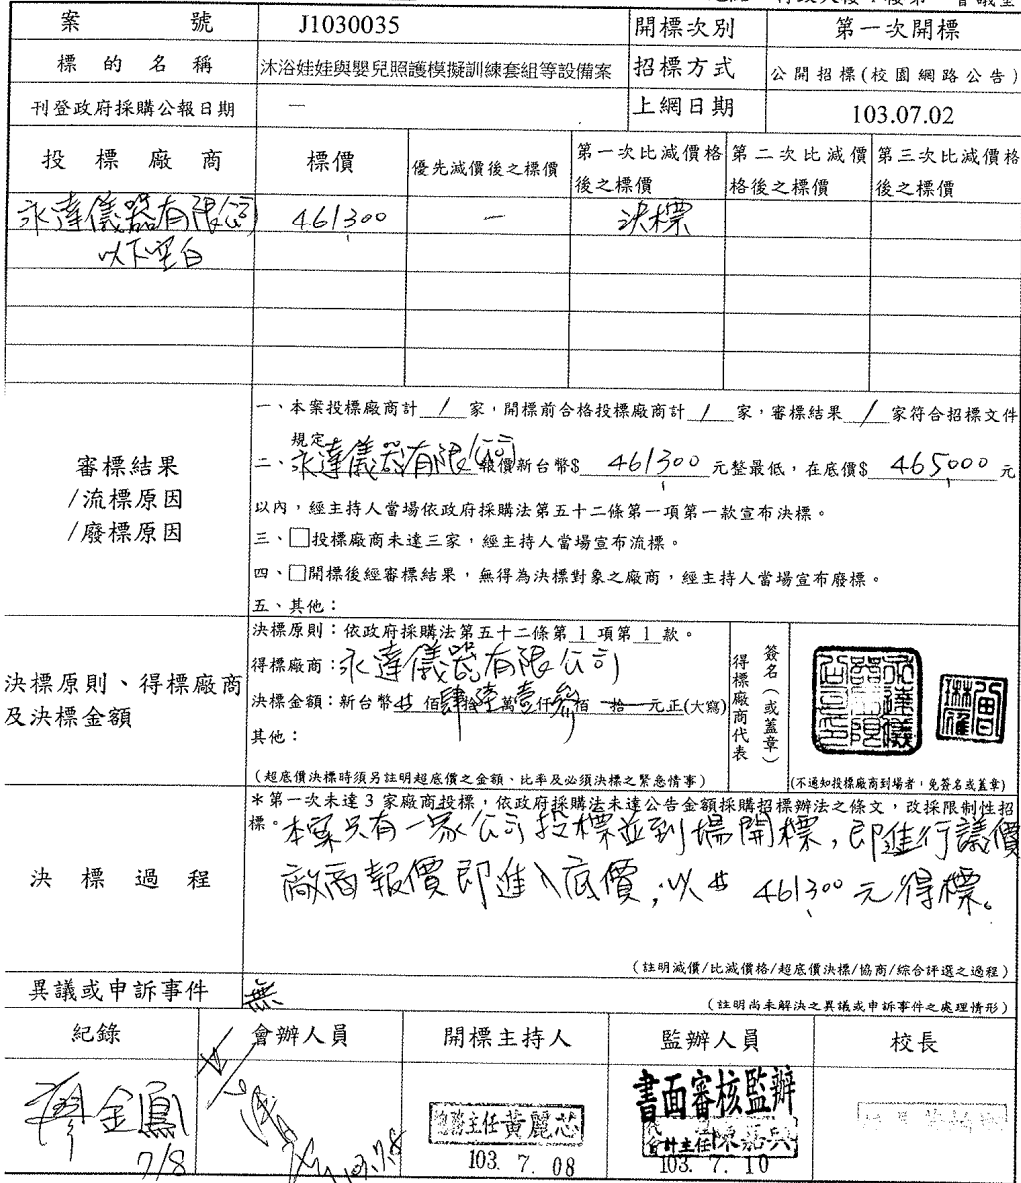 案號 J1030035 開標次別 第一次開標
標的名稱 沐浴娃娃與嬰兒照護模擬訓練套組等設備案 招標方式 公開招標(校園網路公告)
刊登政府採購公報日期 — 上網日期 103.07.02
投標廠商 標價 優先減價後之標價 第一次比減價格後之標價 第二次比減價格後之標價 第三次比減價格後之標價
永達儀器有限公司 461300 — 決標
以下空白
審標結果
/流標原因
/廢標原因
一、本案投標廠商計 1 家,開標前合格投標廠商計 1 家,審標結果 1 家符合招標文件
規定
二、永達儀器有限公司報價新台幣$ 461300 元整最低,在底價$ 465000 元
以內,經主持人當場依政府採購法第五十二條第一項第一款宣布決標。
三、□投標廠商未達三家,經主持人當場宣布流標。
四、□開標後經審標結果,無得為決標對象之廠商,經主持人當場宣布廢標。
五、其他:
決標原則、得標廠商
及決標金額
決標原則:依政府採購法第五十二條第 1 項第 1 款。
得標廠商:永達儀器有限公司
決標金額:新台幣 佰肆拾陸萬壹仟參佰 拾 元正(大寫)
其他:
(超底價決標時須另註明超底價之金額、比率及必須決標之緊急情事)
得標廠商代表
簽名(或蓋章)
(不通知投標廠商到場者,免簽名或蓋章)
決標過程
*第一次未達3家廠商投標,依政府採購法未達公告金額採購招標辦法之條文,改採限制性招
標。本案只有一家公司投標並到場開標,即進行議價
廠商報價即進入底價,以$ 461300元得標。
(註明減價/比減價格/超底價決標/協商/綜合評選之過程)
異議或申訴事件 無
(註明尚未解決之異議或申訴事件之處理情形)
紀錄 會辦人員 開標主持人 監辦人員 校長
廖金鳳
7/8
103.7.8
總務主任黃麗芯
103. 7. 08
書面審核監辦
會計主任陳嘉興
103. 7. 10